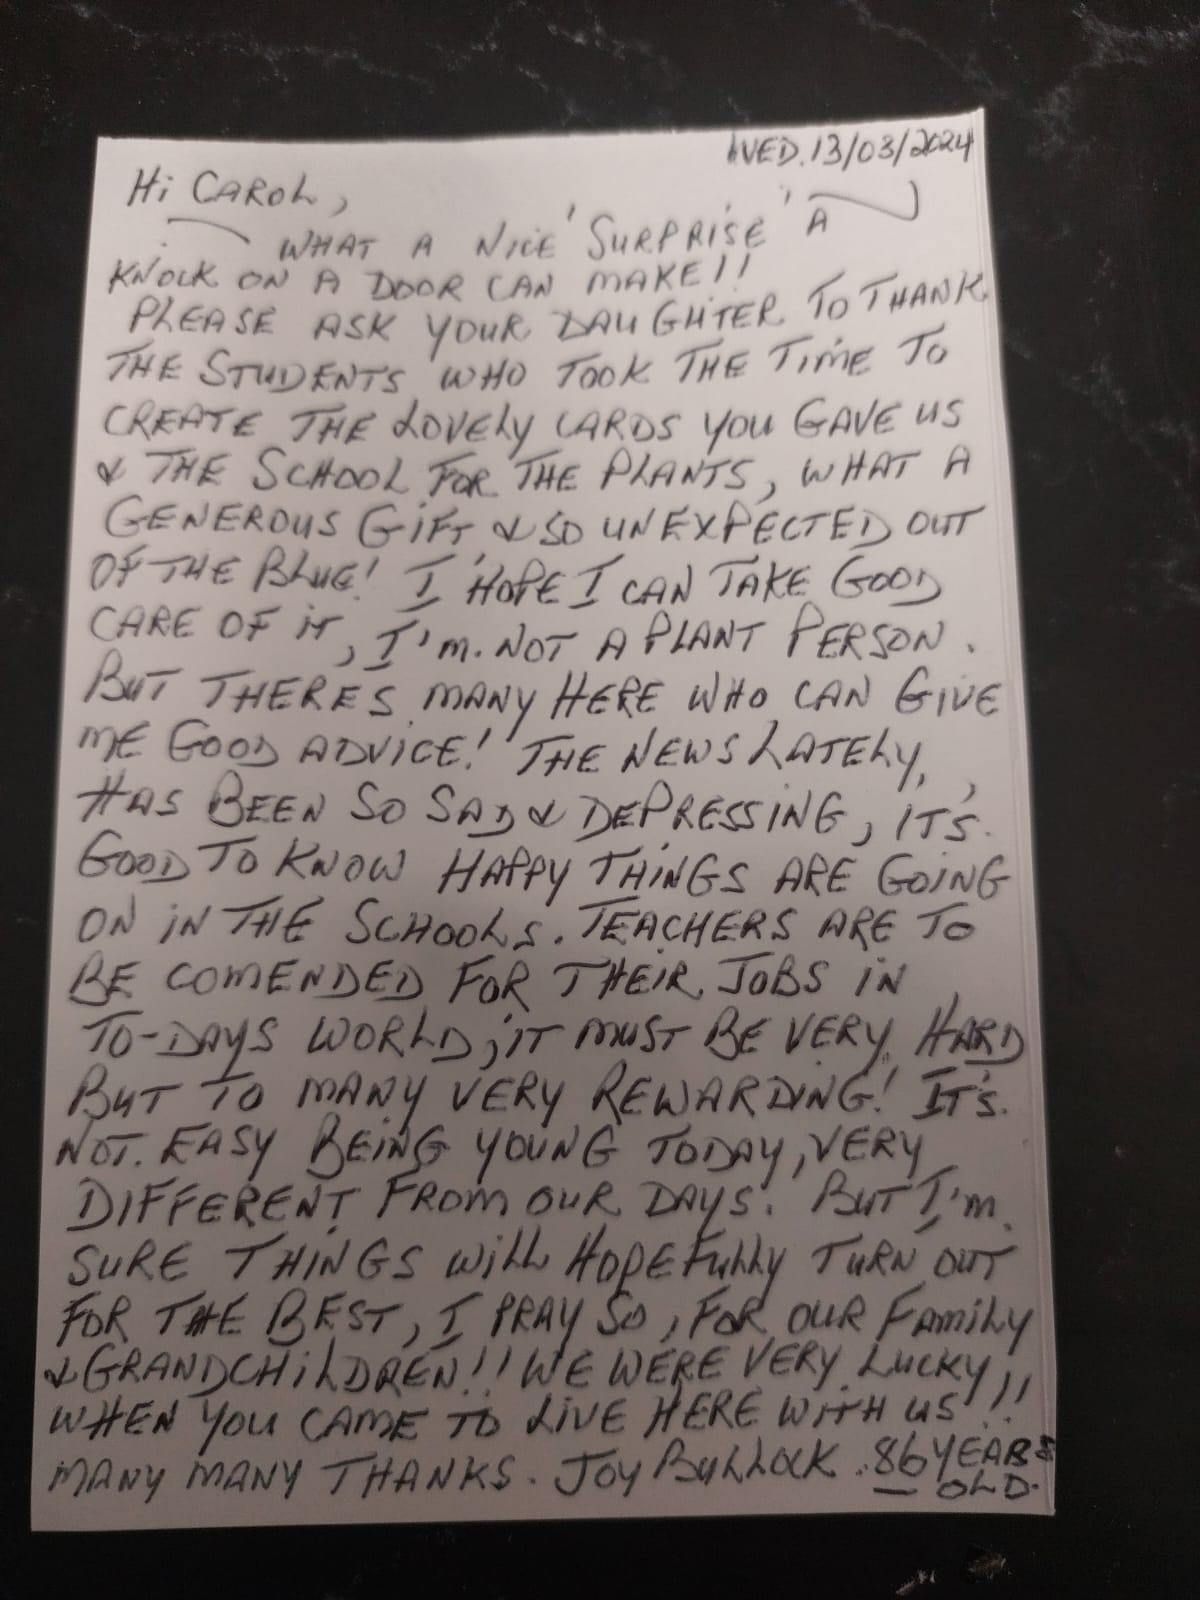 WED. 13/03/2024
Hi CAROL,
WHAT A NICE 'SURPRISE' A
KNOCK ON A DOOR CAN MAKE!!
PLEASE ASK YOUR DAUGHTER TO THANK
THE STUDENTS WHO TOOK THE TIME TO
CREATE THE LOVELY CARDS YOU GAVE US
& THE SCHOOL FOR THE PLANTS, WHAT A
GENEROUS GIFT & SO UNEXPECTED OUT
OF THE BLUE! I HOPE I CAN TAKE GOOD
CARE OF iT, I'm. NOT A PLANT PERSON.
BUT THERE'S MANY HERE WHO CAN GIVE
ME GOOD ADVICE! THE NEWS LATELY,
HAS BEEN SO SAD & DEPRESSING, IT'S.
GOOD TO KNOW HAPPY THINGS ARE GOING
ON iN THE SCHOOLS. TEACHERS ARE TO
BE COMENDED FOR THEIR JOBS IN
TO-DAYS WORLD, iT MUST BE VERY HARD
BUT TO MANY VERY REWARDING! IT'S.
NOT. EASY BEING YOUNG TODAY, VERY
DIFFERENT FROM OUR DAYS. BUT I'm.
SURE THINGS WILL HOPEFULLY TURN OUT
FOR THE BEST, I PRAY SO, FOR OUR FAMILY
& GRANDCHiLDREN!! WE WERE VERY LUCKY
WHEN YOU CAME TO LIVE HERE WITH US!!
MANY MANY THANKS. JOY BULLOCK. 86 YEARS
OLD.